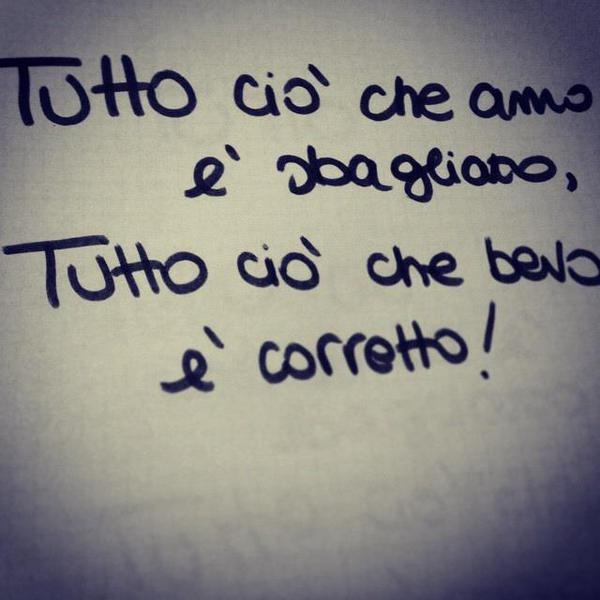 Tutto ciò che amo
è sbagliato,
Tutto ciò che bevo
è corretto!